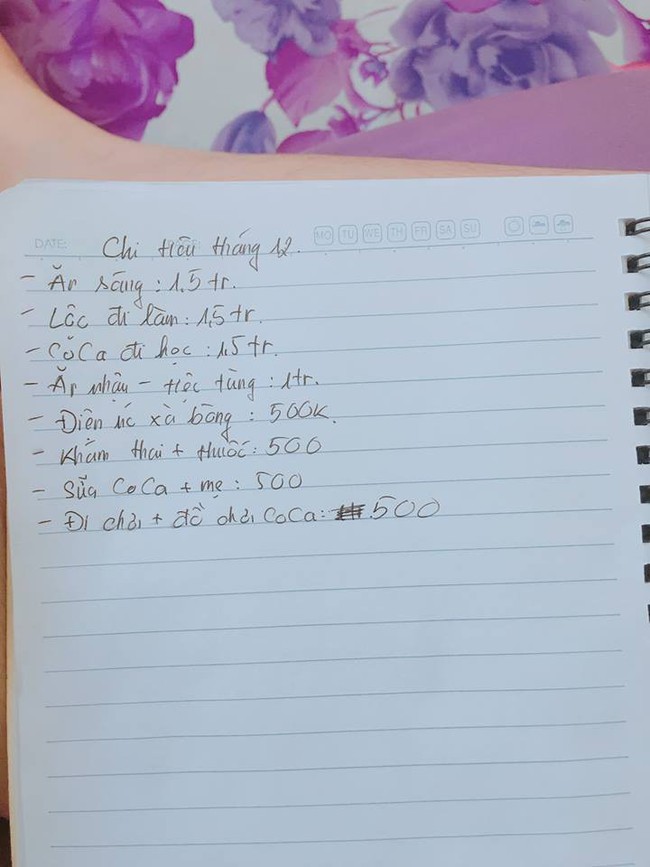 DATE: Chi tiêu tháng 12. MO TU WE TH FR SA SU
- Ăn sáng : 1,5 tr.
- Lộc đi làm : 1,5 tr.
- CôCa đi học : 1,5 tr.
- Ăn nhậu - tiệc tùng : 1tr.
- Điện xà bông : 500K.
- Khám thai + thuốc : 500
- Sữa CoCa + mẹ : 500
- Đi chơi + đồ chơi CoCa: 500